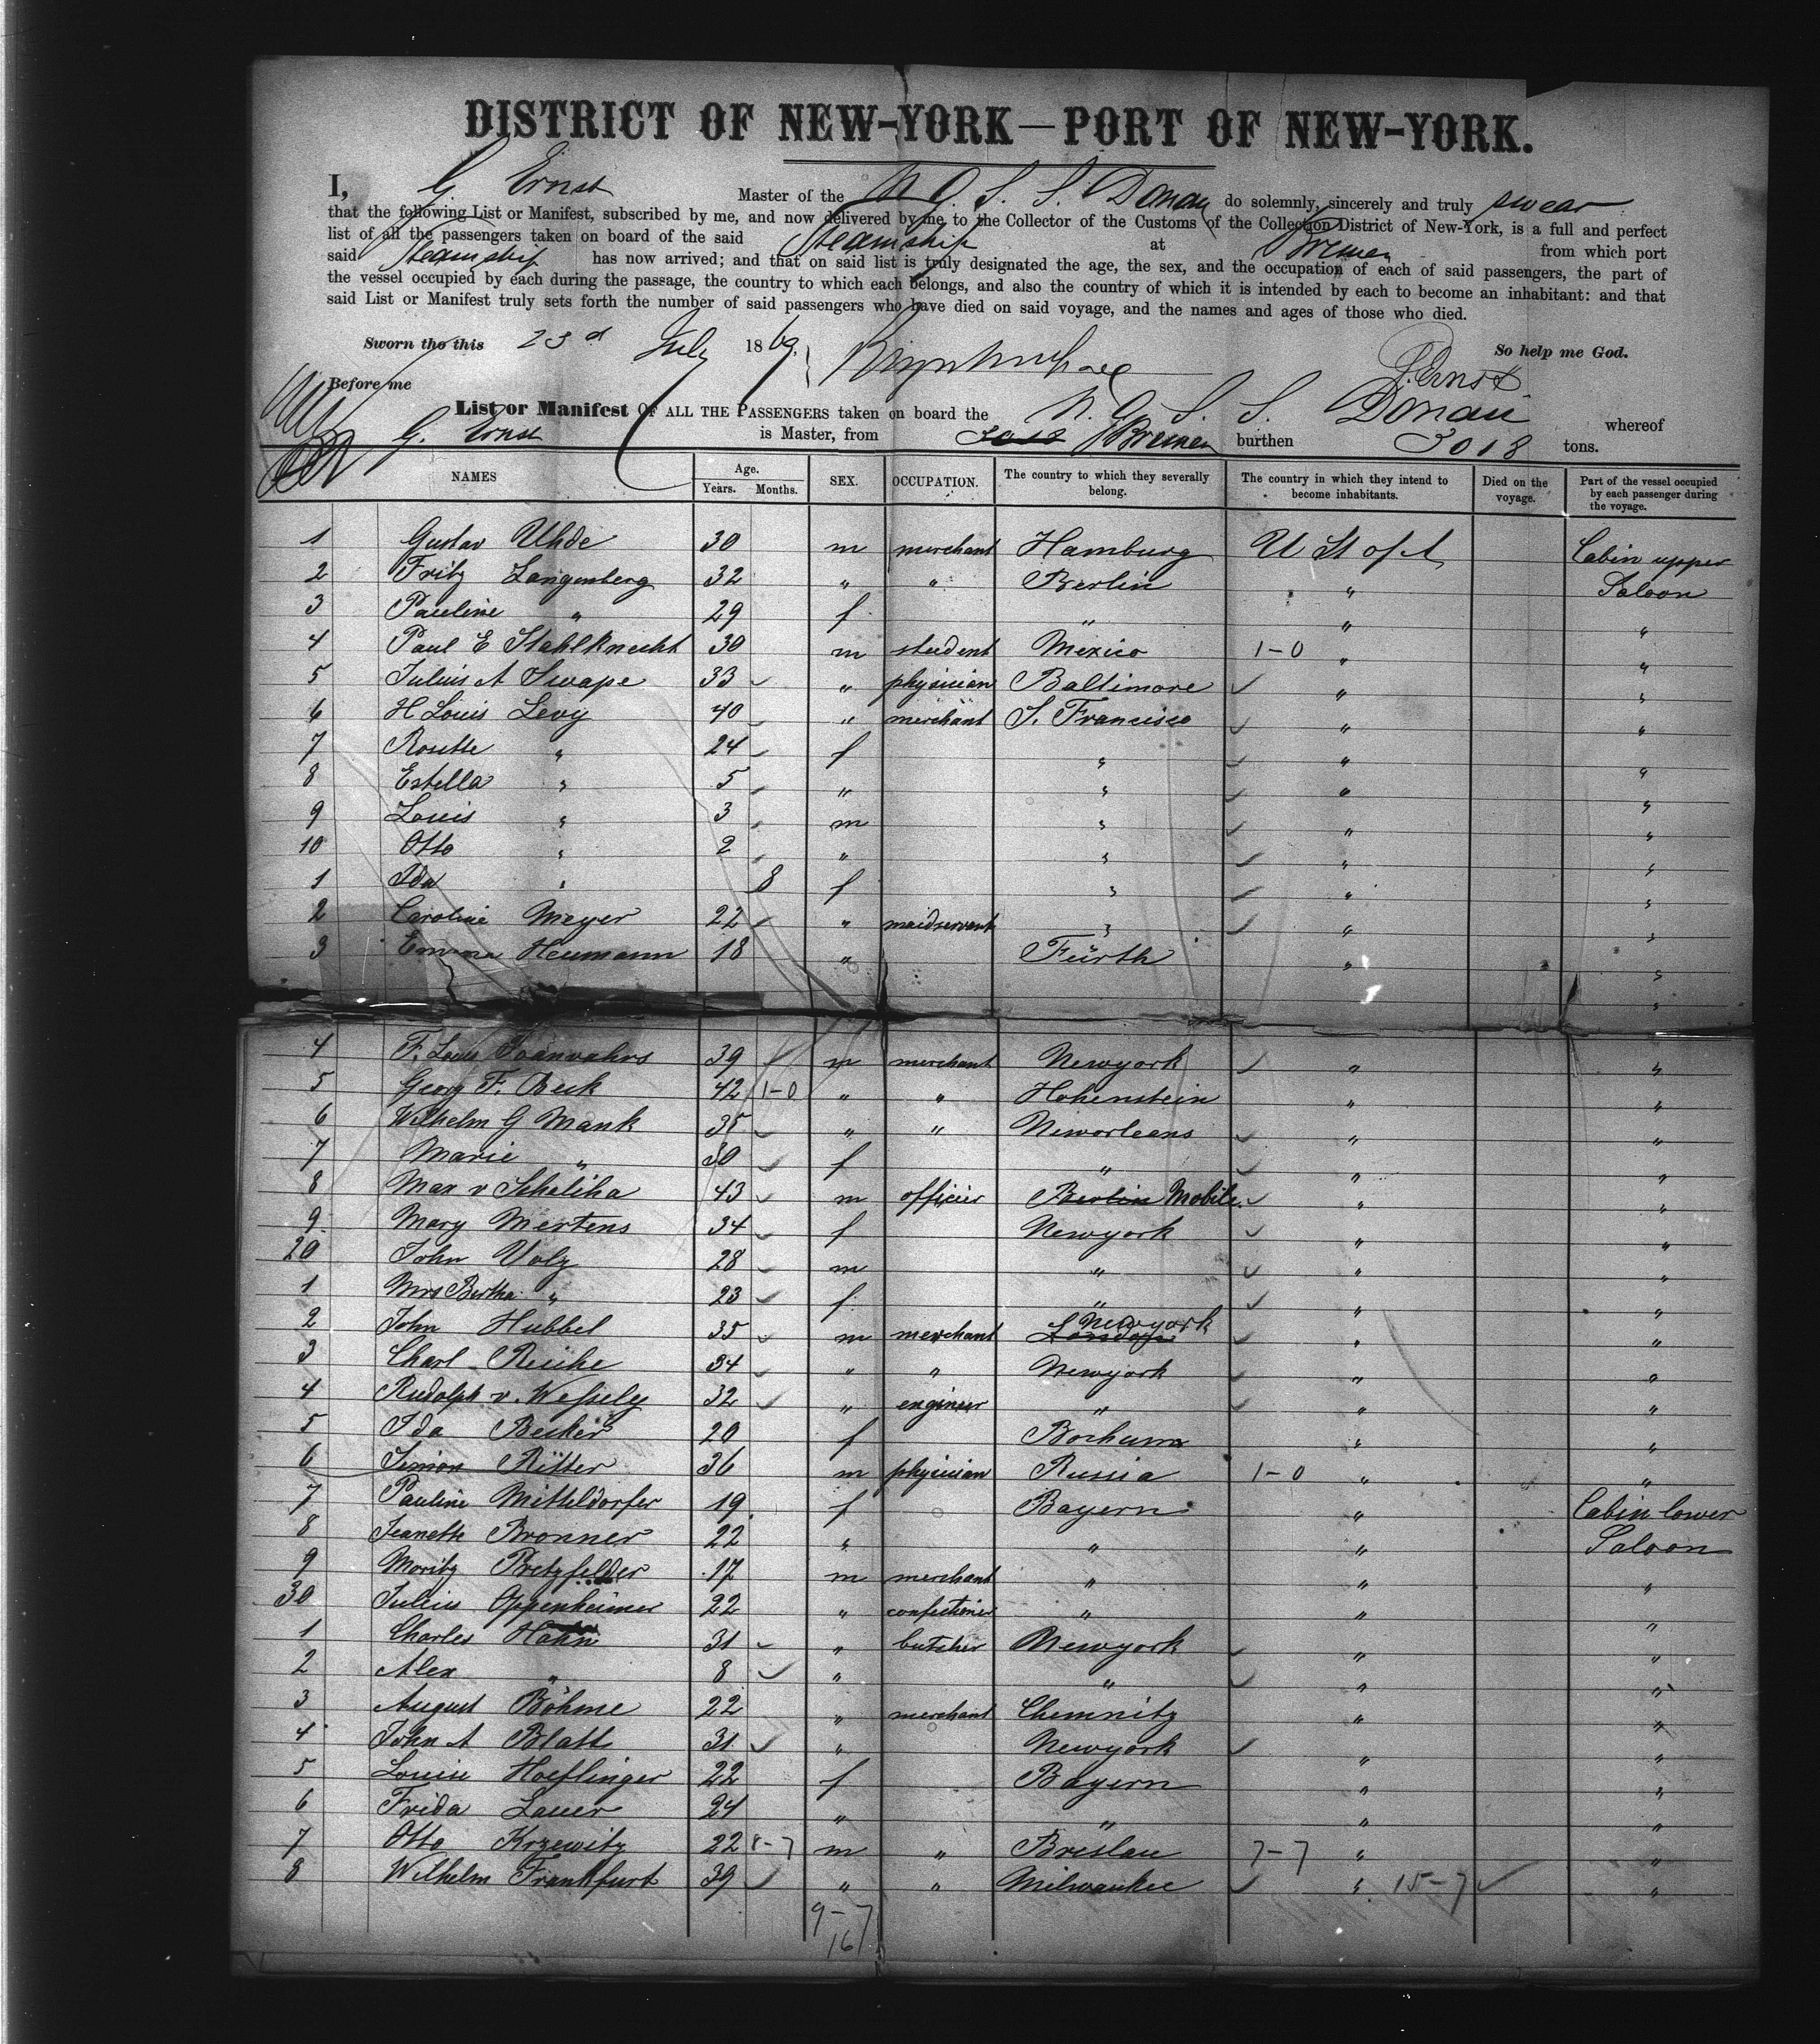 DISTRICT OF NEW-YORK—PORT OF NEW-YORK.
I, G. Ernst Master of the N. G. S. S. Donau do solemnly, sincerely and truly swear
that the following List or Manifest, subscribed by me, and now delivered by me, to the Collector of the Customs of the Collection District of New-York, is a full and perfect
list of all the passengers taken on board of the said Steamship at Bremen from which port
said Steamship has now arrived; and that on said list is truly designated the age, the sex, and the occupation of each of said passengers, the part of
the vessel occupied by each during the passage, the country to which each belongs, and also the country of which it is intended by each to become an inhabitant: and that
said List or Manifest truly sets forth the number of said passengers who have died on said voyage, and the names and ages of those who died.
Sworn tho this 23d July 1869. So help me God.
Before me G. Ernst
List or Manifest OF ALL THE PASSENGERS taken on board the N. G. S. S. Donau whereof
G. Ernst is Master, from 3018 Bremen burthen 3018 tons.
NAMES Age. Years. Months. SEX. OCCUPATION. The country to which they severally belong. The country in which they intend to become inhabitants. Died on the voyage. Part of the vessel occupied by each passenger during the voyage.
1 Gustav Uhde 30 m merchant Hamburg U St of A Cabin upper
2 Fritz Langenberg 32 " " Berlin " Saloon
3 Pauline " 29 f " " "
4 Paul E Stahlknecht 30 m student Mexico 1-0 " "
5 Julius A Swape 33 " physician Baltimore " "
6 H Louis Levy 40 " merchant S. Francisco " "
7 Rosette " 24 f " " "
8 Estella " 5 " " " "
9 Louis " 3 m " " "
10 Otto " 2 " " " "
1 Ida " 8 f " " "
2 Caroline Meyer 22 " maidservant " " "
3 Emma Heumann 18 " Fürth " "
4 F. Louis 39 m merchant Newyork " "
5 Georg F. Beck 42 1-0 " " Hohenstein " "
6 Wilhelm G Mank 35 " " Neworleans " "
7 Marie " 30 f " " "
8 Max v Scheliha 43 m officier Berlin Mobile " "
9 Mary Mertens 34 f Newyork " "
20 John Volz 28 m " " "
1 Mrs Bertha " 23 f " " "
2 John Hubbel 35 m merchant London Newyork " "
3 Charl Reiche 34 " " Newyork " "
4 Rudolph v. Wessely 32 " engineur " " "
5 Ida Becker 20 f Bochum " "
6 Simon Ritter 36 m physician Russia 1-0 " "
7 Pauline Mitteldorfer 19 f Bayern " Cabin lower
8 Jeanette Bronner 22 " " " Saloon
9 Moritz Pretzfelder 17 m merchant " " "
30 Julius Oppenheimer 22 " confectioner " " "
1 Charles Hahn 31 " butcher Newyork " "
2 Alex " 8 " " " "
3 August Böhme 22 " merchant Chemnitz " "
4 John A Blatt 31 " Newyork " "
5 Louise Hoeflinger 22 f Bayern " "
6 Frida Lauer 24 " " " "
7 Otto Krzewitz 22 8-7 m " Breslau 7-7 " "
8 Wilhelm Frankfurt 39 " " Milwaukee " 15-7 "
9-7
16